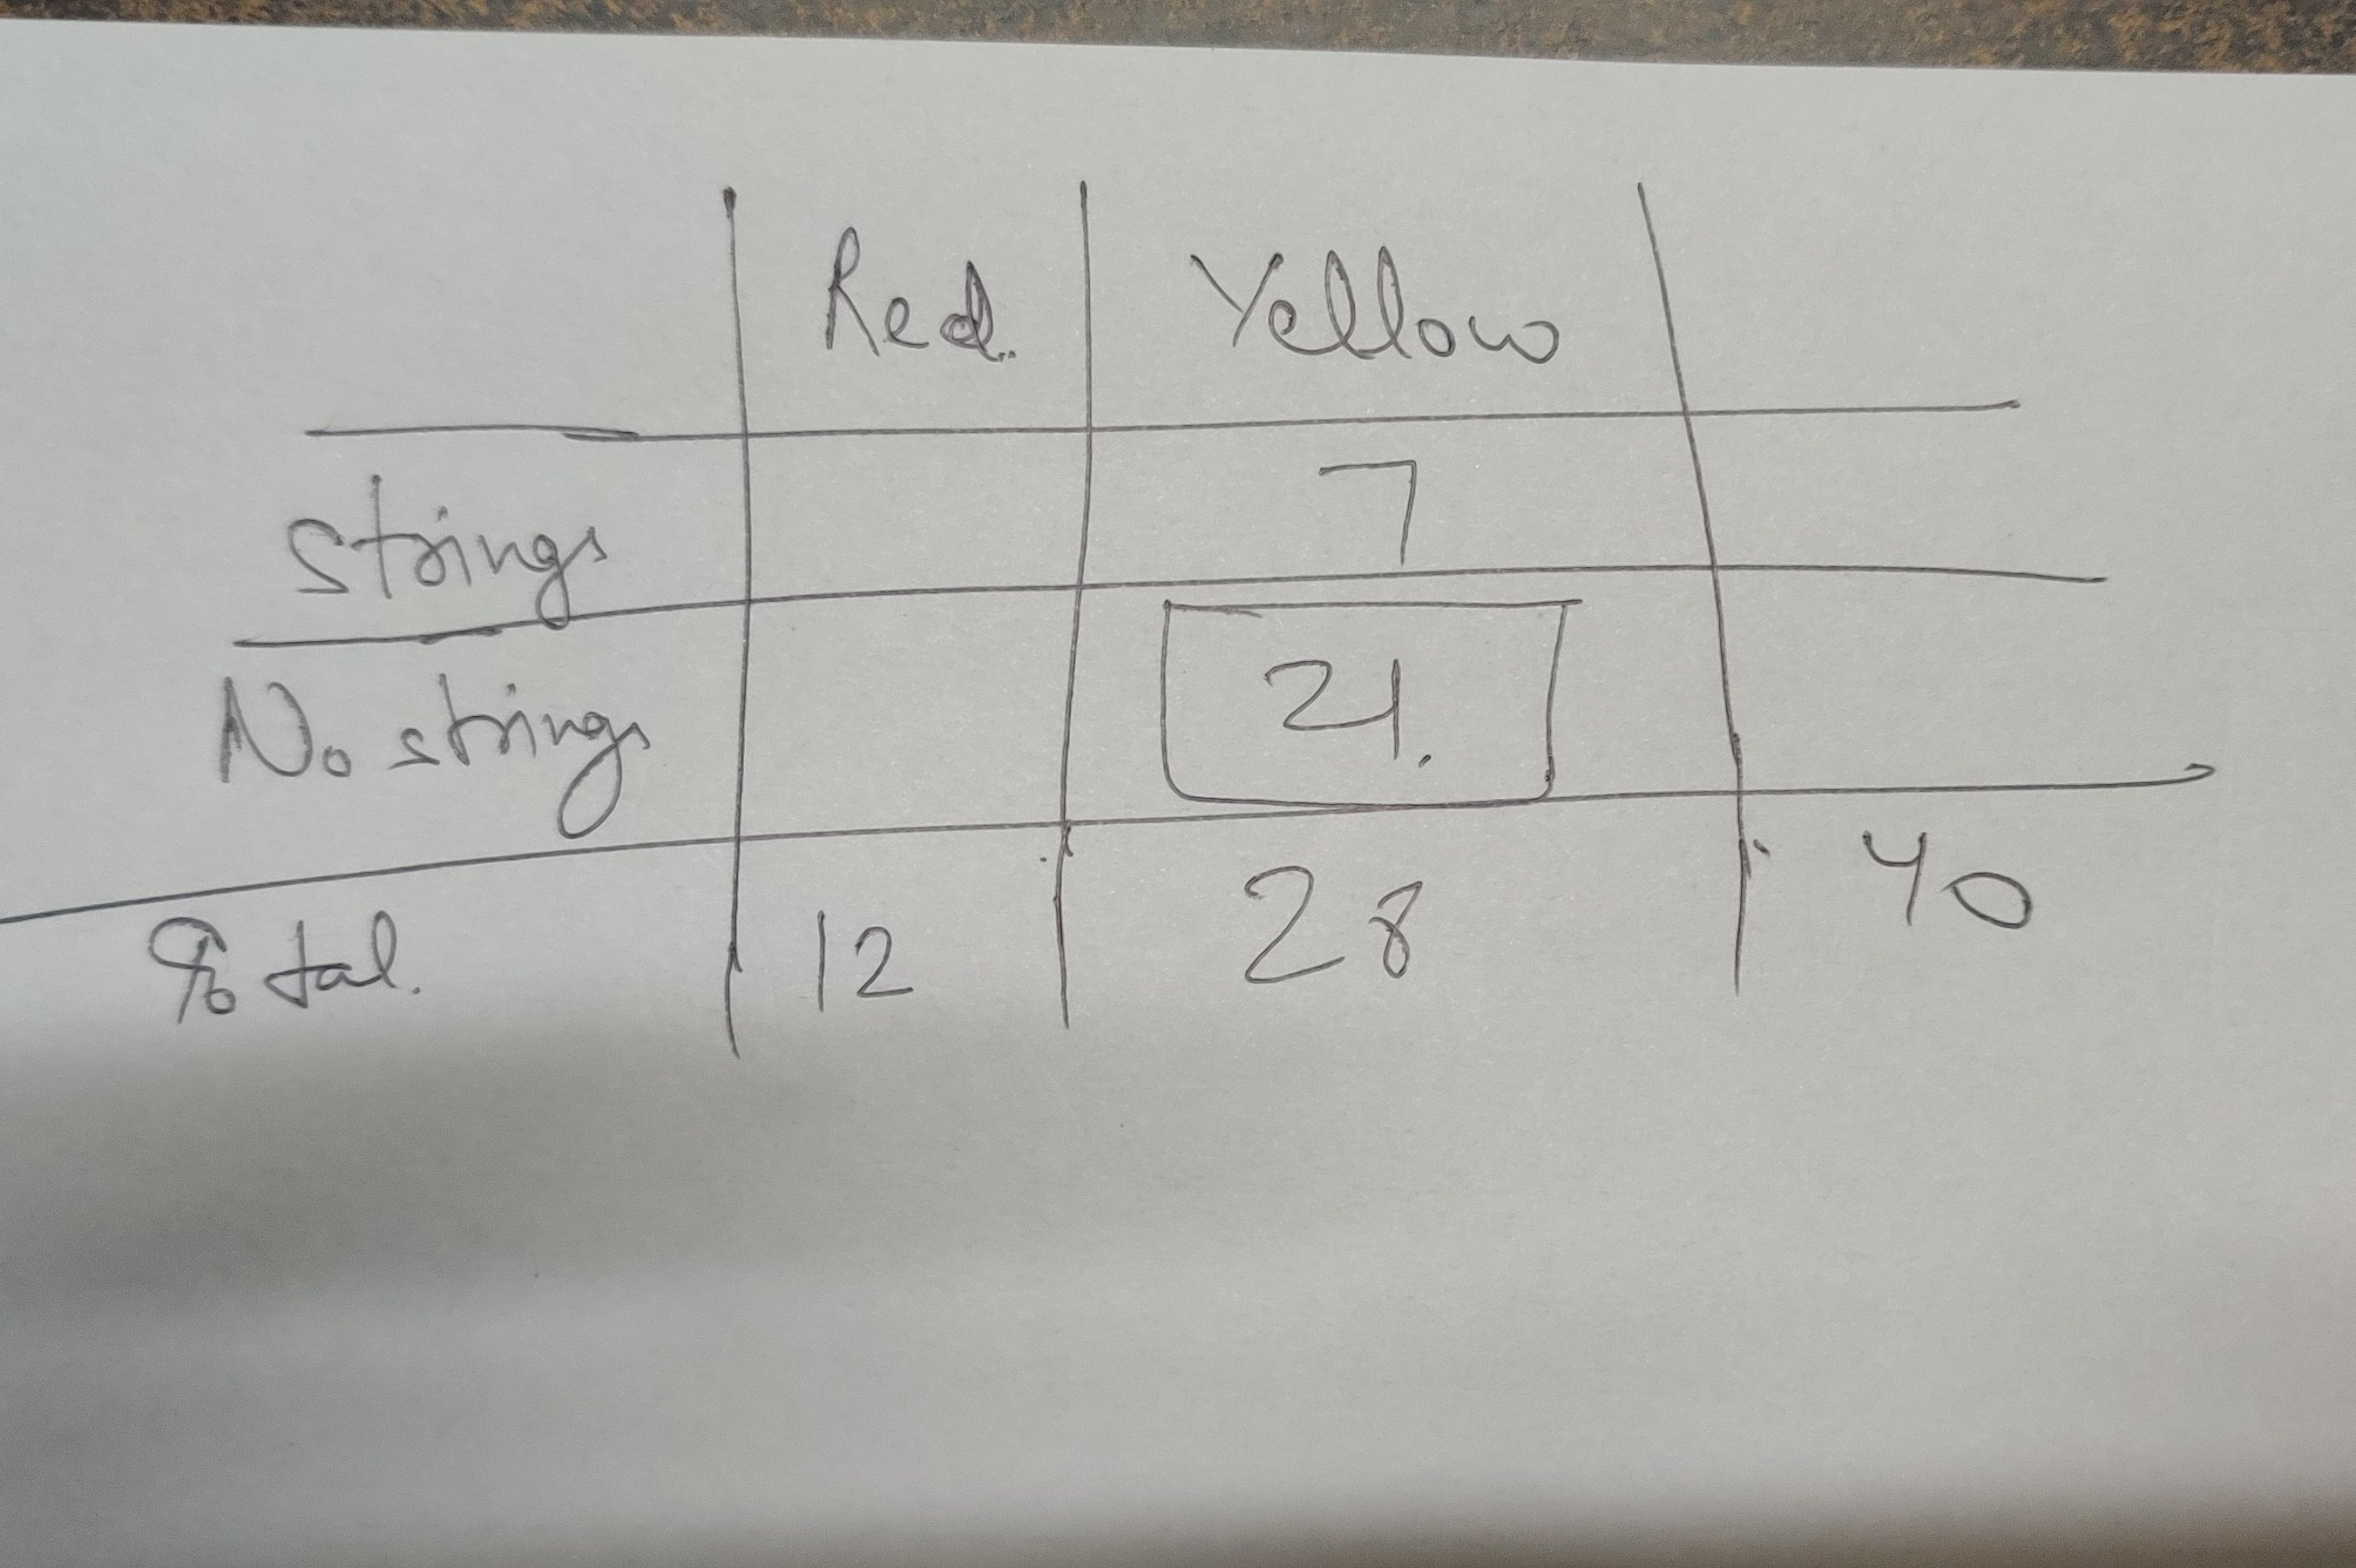 Red. Yellow
Strings 7
No strings 21.
Total. 12 28 40